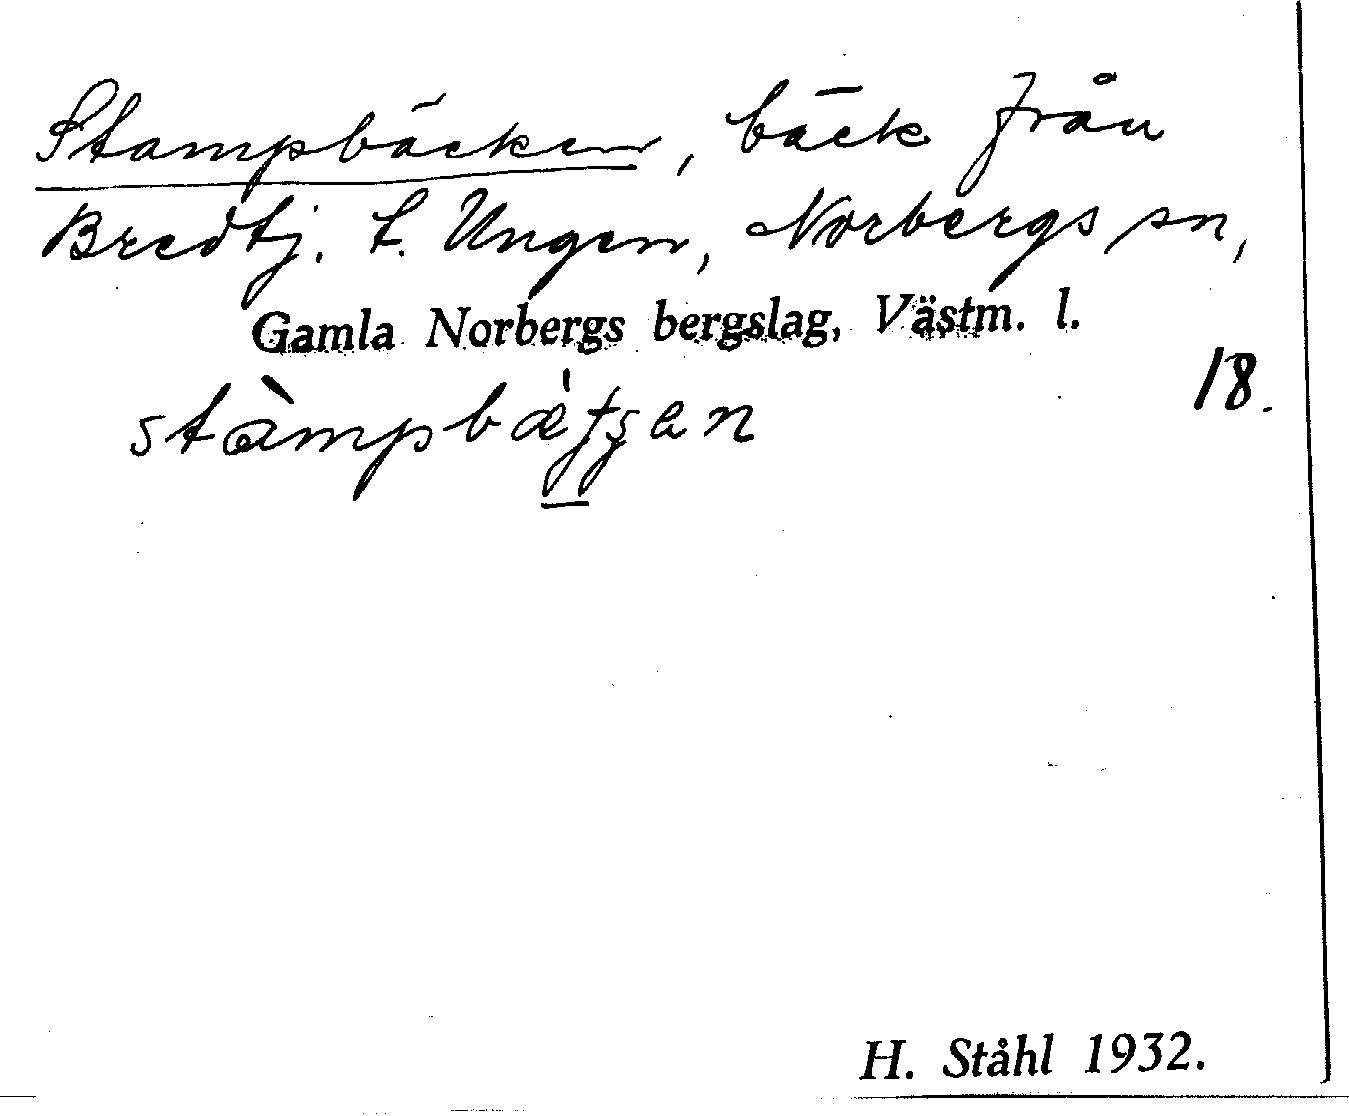 Stampbäcken, bäck från
Bredtj. t. Ungen, Norbergs sn,
Gamla Norbergs bergslag, Västm. l.
18.
H. Ståhl 1932.